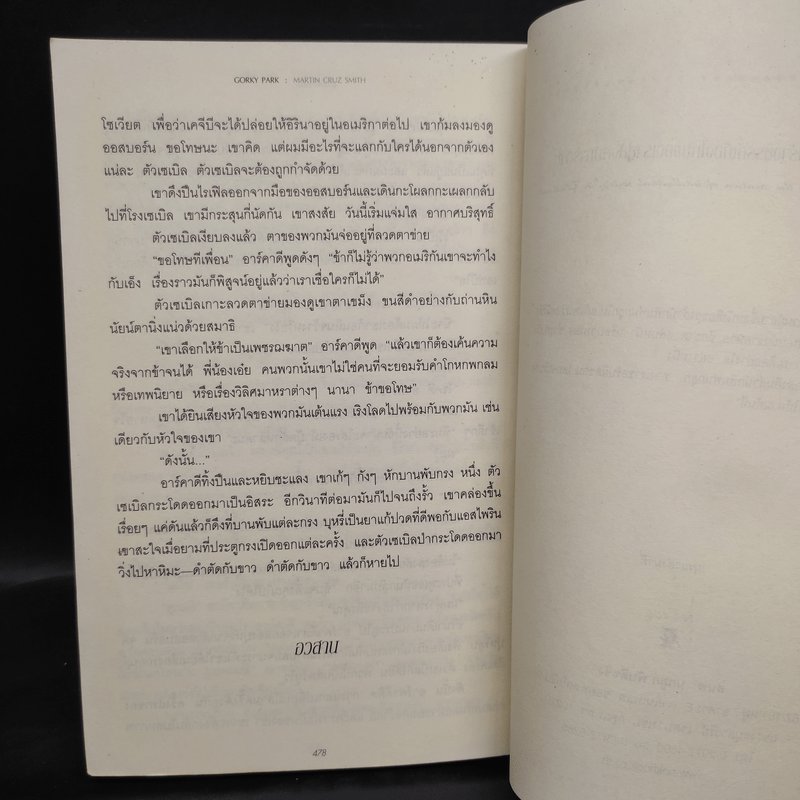 GORKY PARK : MARTIN CRUZ SMITH
โซเวียต เพื่อว่าเคจีบีจะได้ปล่อยให้อิรินาอยู่ในอเมริกาต่อไป เขาก้มลงมองดู
ออสบอร์น ขอโทษนะ เขาคิด แต่ผมมีอะไรที่จะแลกกับใครได้นอกจากตัวเอง
แน่ละ ตัวเซเบิล ตัวเซเบิลจะต้องถูกกำจัดด้วย
เขาดึงปืนไรเฟิลออกจากมือของออสบอร์นและเดินกะโผลกกะเผลกกลับ
ไปที่โรงเซเบิล เขามีกระสุนกี่นัดกัน เขาสงสัย วันนี้เริ่มแจ่มใส อากาศบริสุทธิ์
ตัวเซเบิลเงียบลงแล้ว ตาของพวกมันจ่ออยู่ที่ลวดตาข่าย
“ขอโทษทีเพื่อน” อาร์คาดีพูดดังๆ “ข้าก็ไม่รู้ว่าพวกอเมริกันเขาจะทำไง
กับเอ็ง เรื่องราวมันก็พิสูจน์อยู่แล้วว่าเราเชื่อใครก็ไม่ได้”
ตัวเซเบิลเกาะลวดตาข่ายมองดูเขาตาเขม็ง ขนสีดำอย่างกับถ่านหิน
นัยน์ตานิ่งแน่วด้วยสมาธิ
“เขาเลือกให้ข้าเป็นเพชรฌฆาต” อาร์คาดีพูด “แล้วเขาก็ต้องเค้นความ
จริงจากข้าจนได้ พี่น้องเอ๋ย คนพวกนั้นเขาไม่ใช่คนที่จะยอมรับคำโกหกพกลม
หรือเทพนิยาย หรือเรื่องวิลิศมาหราต่างๆ นานา ข้าขอโทษ”
เขาได้ยินเสียงหัวใจของพวกมันเต้นแรง เริงโลดไปพร้อมกับพวกมัน เช่น
เดียวกับหัวใจของเขา
“ดังนั้น...”
อาร์คาดีทิ้งปืนและหยิบชะแลง เขาเก้ๆ กังๆ หักบานพับกรง หนึ่ง ตัว
เซเบิลกระโดดออกมาเป็นอิสระ อีกวินาทีต่อมามันก็ไปจนถึงรั้ว เขาคล่องขึ้น
เรื่อยๆ แค่ดันแล้วก็ดึงที่บานพับแต่ละกรง บุหรี่เป็นยาแก้ปวดที่ดีพอกับแอสไพริน
เขาสะใจเมื่อยามที่ประตูกรงเปิดออกแต่ละครั้ง และตัวเซเบิลป่ากระโดดออกมา
วิ่งไปหาหิมะ—ดำตัดกับขาว ดำตัดกับขาว แล้วก็หายไป
อวสาน
478